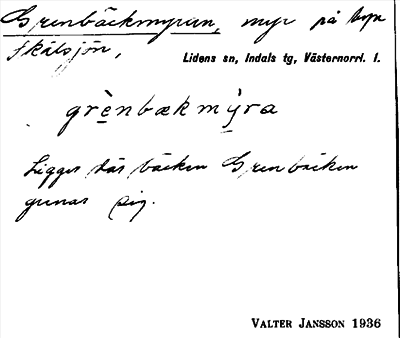 Grenbäckmyran, myr på byn
Skålsjön,
Lidens sn, Indals tg, Västernorrl. l.
grènbækmỳra
Ligger där bäcken Grenbäcken
grenar sig.
VALTER JANSSON 1936